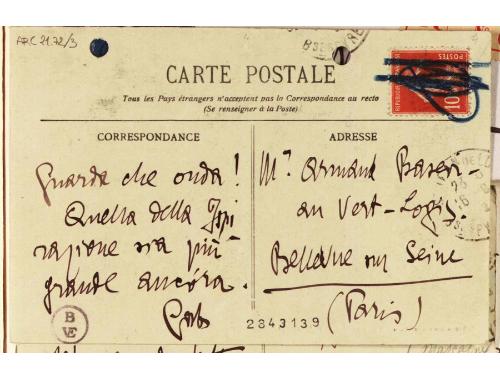 ARC 21.72/3
CARTE POSTALE
Tous les Pays étrangers n'acceptent pas la Correspondance au recto
(Se renseigner à la Poste)
CORRESPONDANCE
ADRESSE
POSTES
10
Guarda che onda!
Quella della Ispi-
razione sia più
grande ancóra.
Gab
Mr Armand
au Vert-Logis.
Bellevue sur Seine
(Paris)
B
VE
2843139